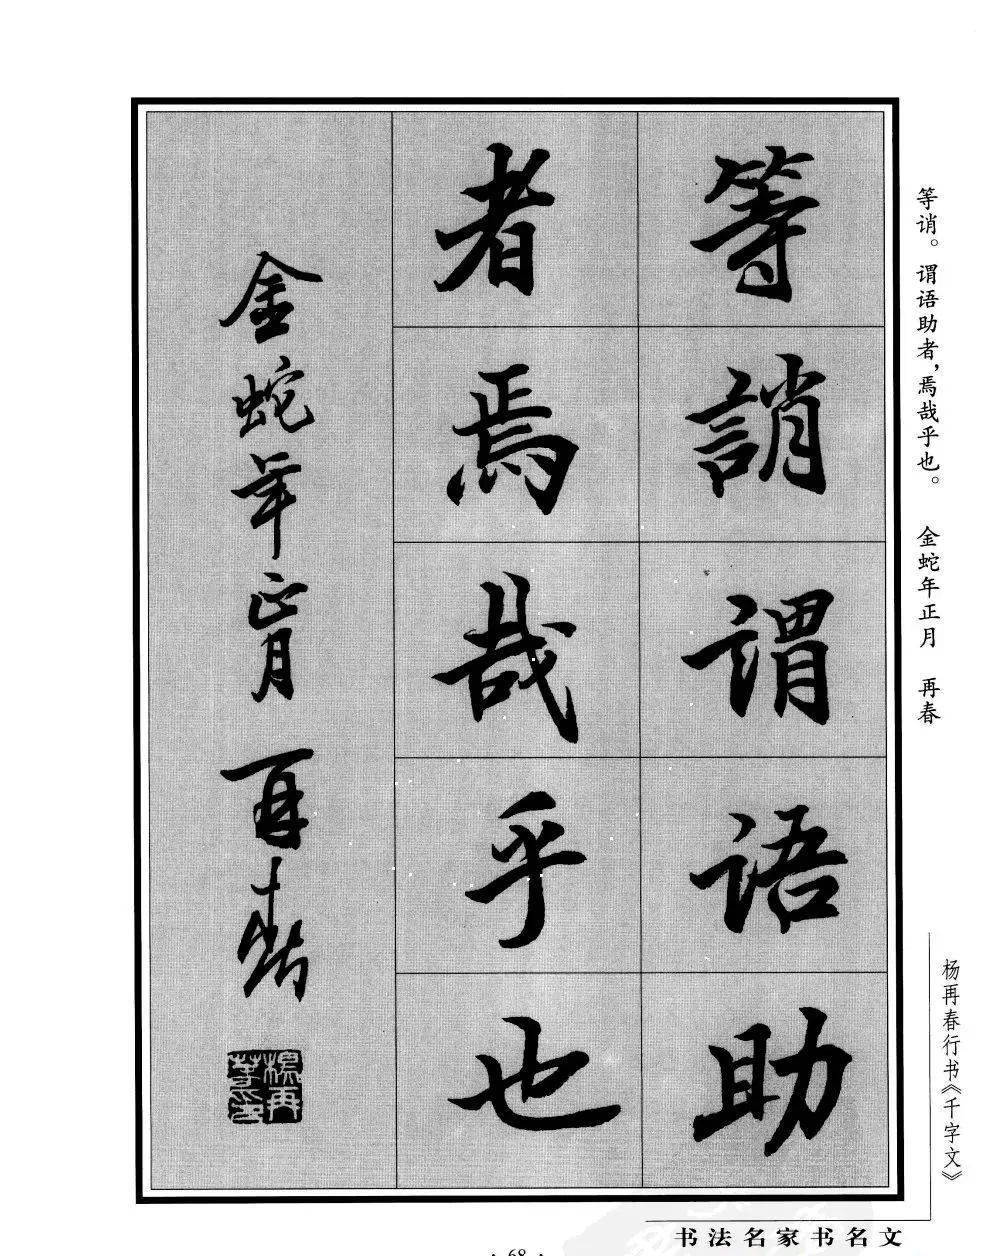 等誚謂语助
者焉哉乎也
金蛇年正月 再春
杨再春印
等诮。谓语助者，焉哉乎也。 金蛇年正月 再春
杨再春行书《千字文》
书法名家书名文
· 68 ·